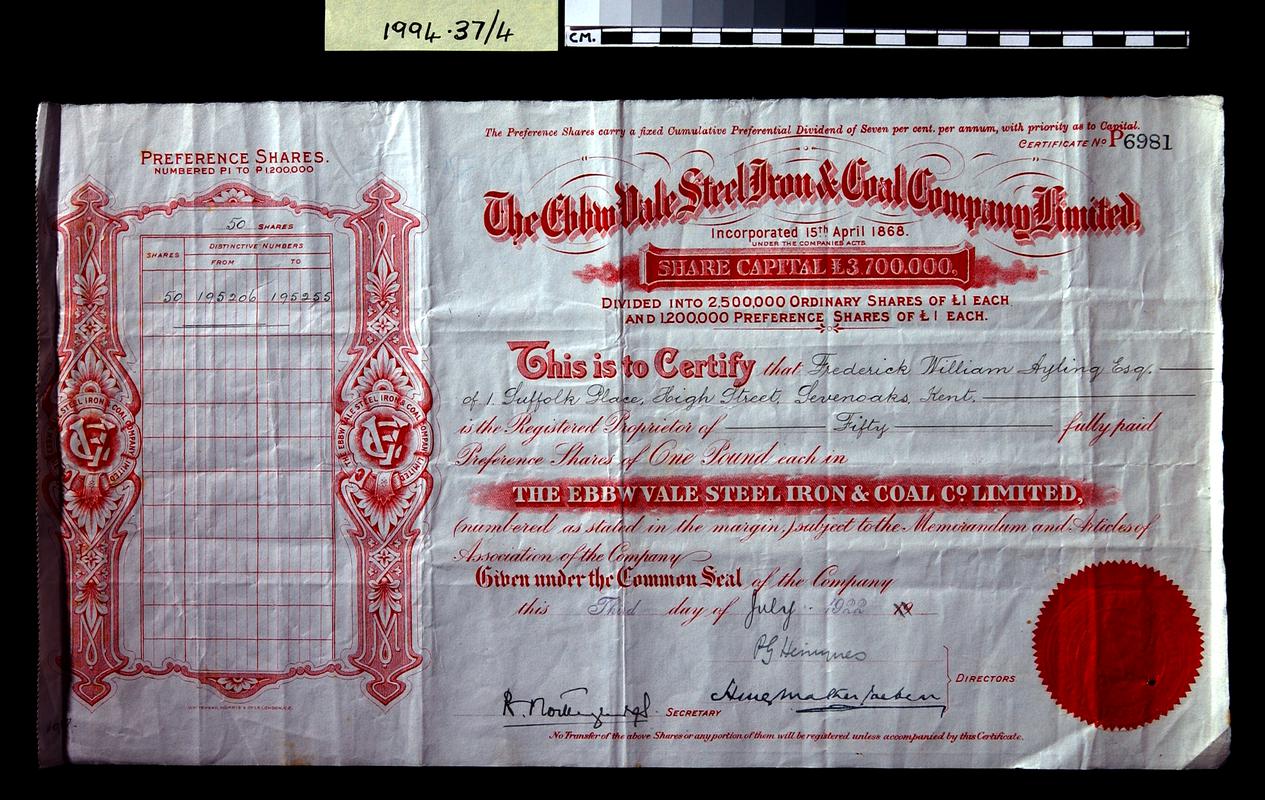 1994.37/4
CM.
PREFERENCE SHARES.
NUMBERED P1 TO P1,200,000
50 SHARES
DISTINCTIVE NUMBERS
SHARES FROM TO
50 195206 195255
THE EBBW VALE STEEL IRON & COAL COMPANY LIMITED
The Preference Shares carry a fixed Cumulative Preferential Dividend of Seven per cent. per annum, with priority as to Capital.
CERTIFICATE No P6981
The Ebbw Vale Steel Iron & Coal Company Limited,
Incorporated 15th April 1868.
UNDER THE COMPANIES ACTS.
SHARE CAPITAL £3,700,000,
DIVIDED INTO 2,500,000 ORDINARY SHARES OF £1 EACH
AND 1,200,000 PREFERENCE SHARES OF £1 EACH.
This is to Certify that Frederick William Ayling Esq.
of 1. Suffolk Place, High Street, Sevenoaks, Kent.
is the Registered Proprietor of Fifty fully paid
Preference Shares of One Pound each in
THE EBBW VALE STEEL IRON & COAL Co LIMITED,
(numbered as stated in the margin,) subject to the Memorandum and Articles of
Association of the Company
Given under the Common Seal of the Company
this Third day of July 1922
DIRECTORS
SECRETARY
No Transfer of the above Shares or any portion of them will be registered unless accompanied by this Certificate.